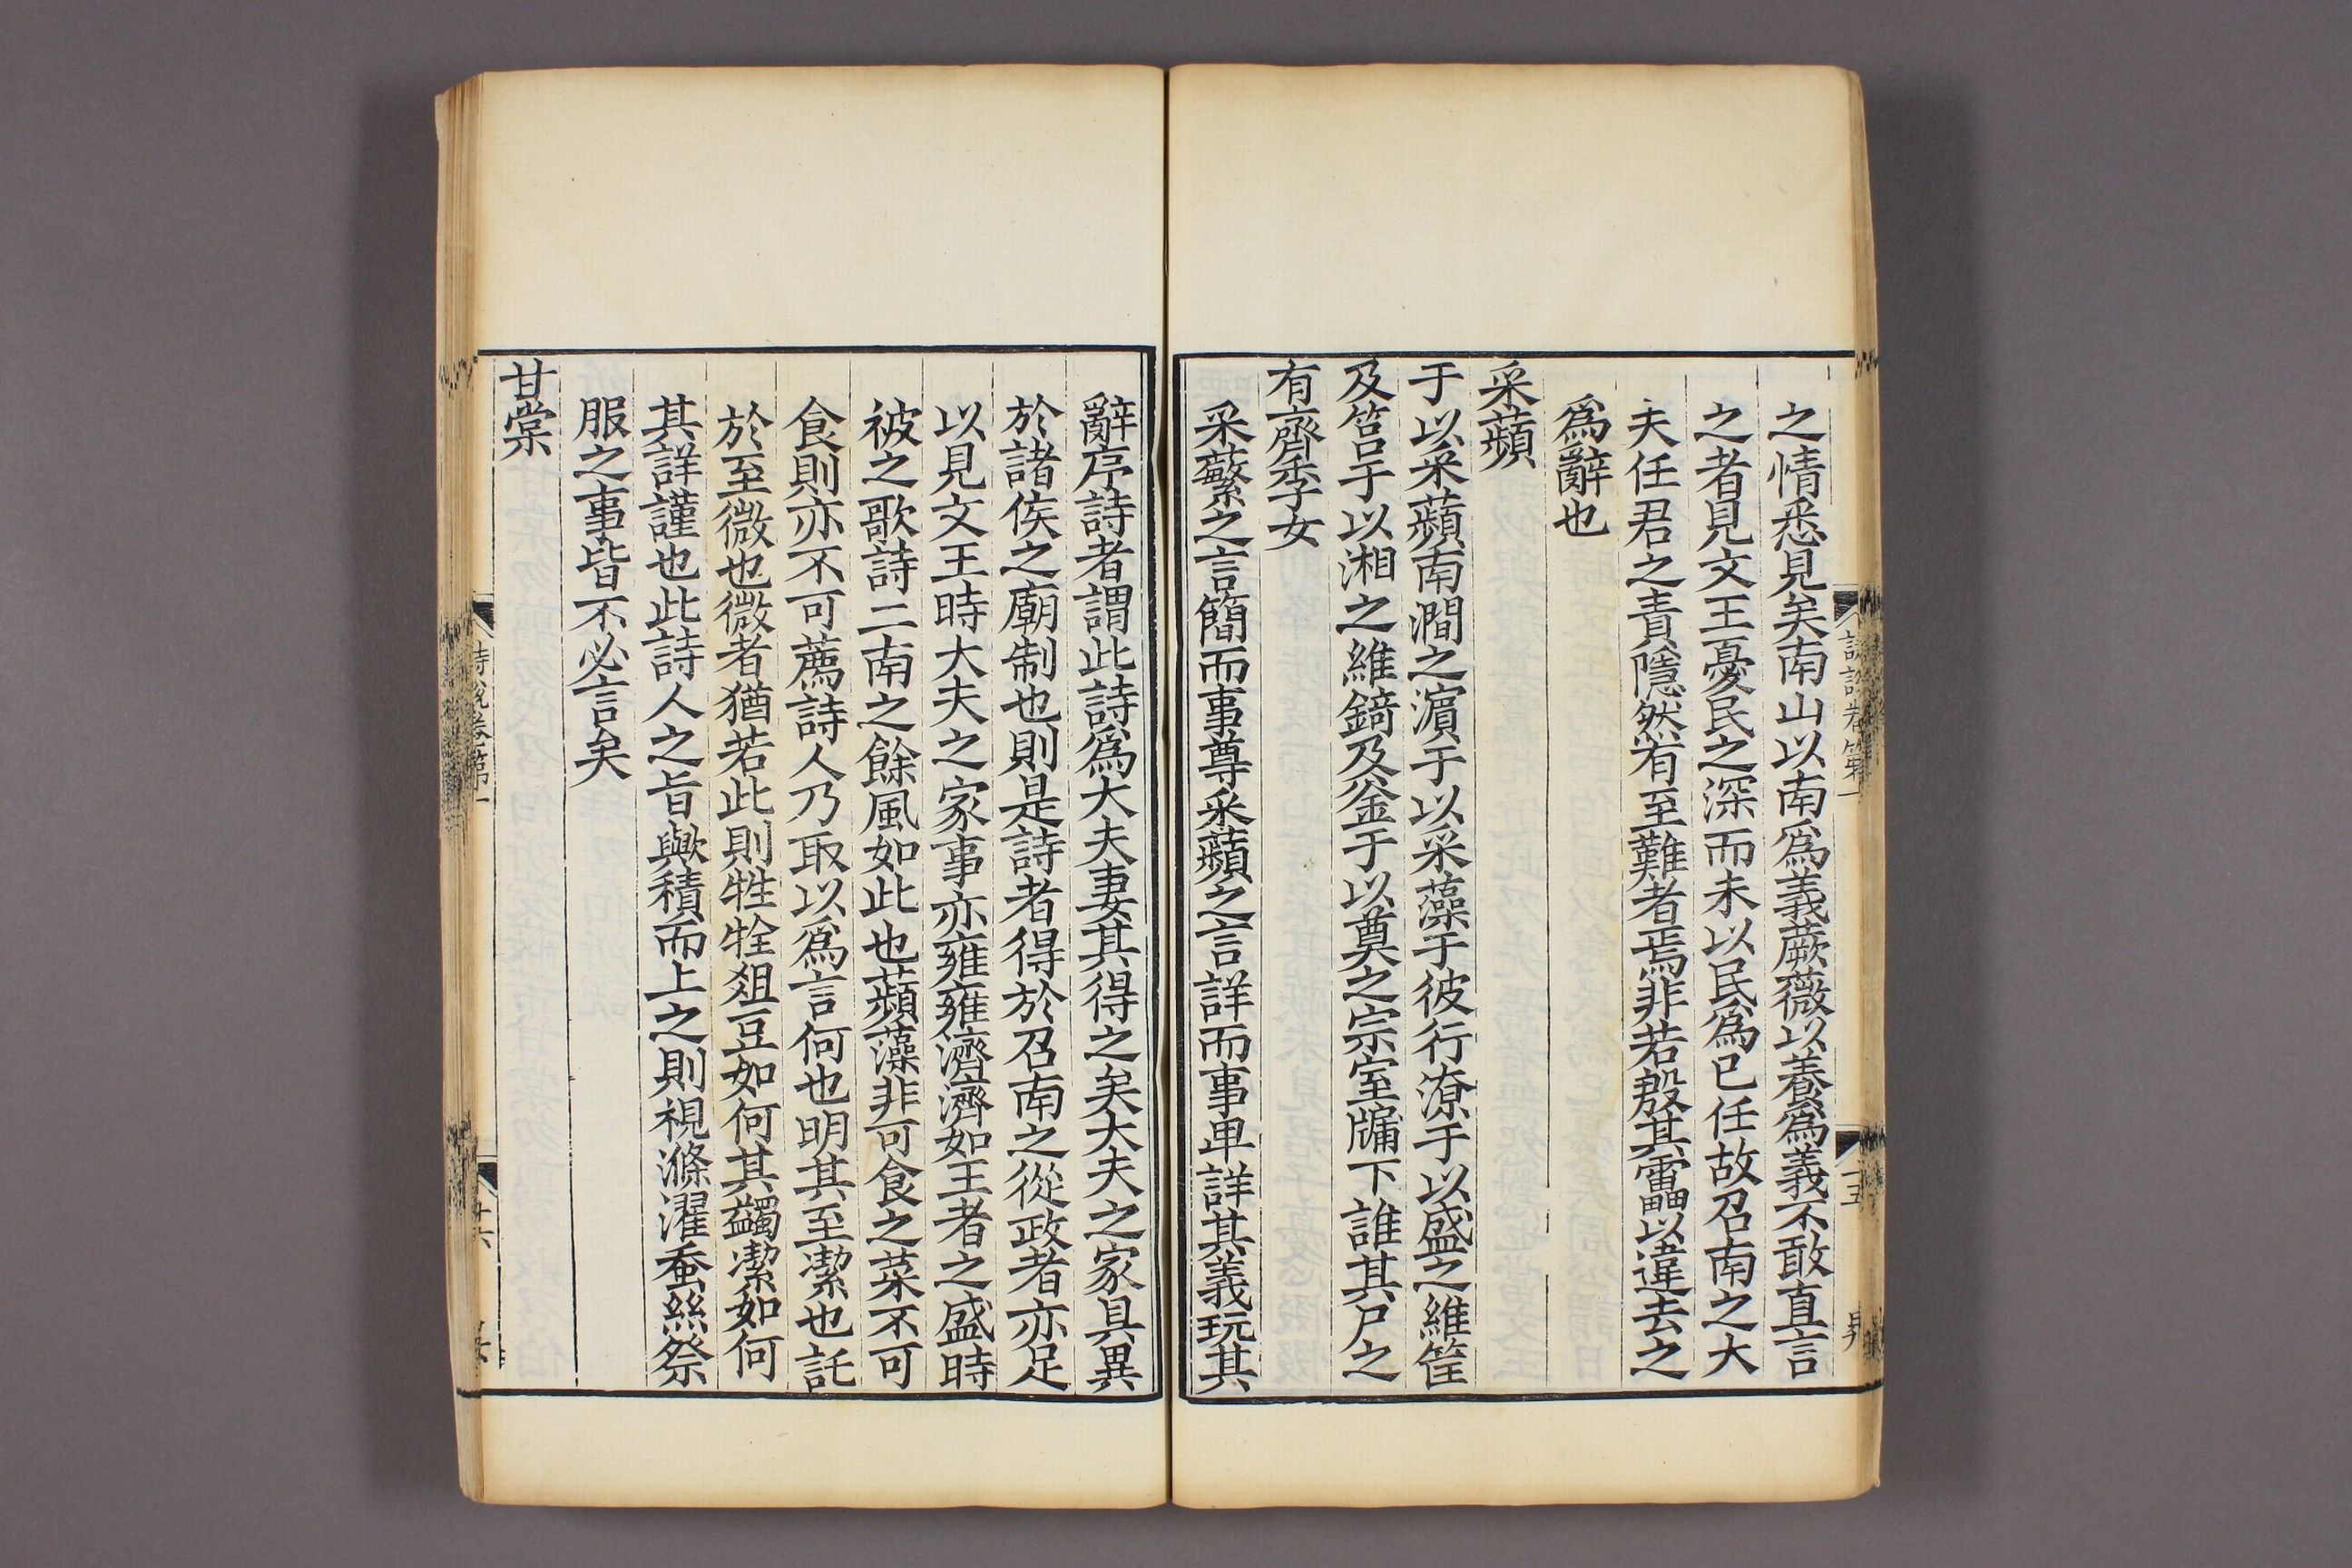 之情悉見矣南山以南爲義蕨薇以養爲義不敢直言
之者見文王憂民之深而未以民爲已任故召南之大
夫任君之責隱然有至難者焉非若殷其靁以違去之
爲辭也
采蘋
于以采蘋南澗之濵于以采藻于彼行潦于以盛之維筐
及筥于以湘之維錡及釡于以奠之宗室牖下誰其尸之
有齊季女
采蘩之言簡而事尊采蘋之言詳而事卑詳其義玩其
辭序詩者謂此詩爲大夫妻其得之矣大夫之家具異
於諸侯之廟制也則是詩者得於召南之從政者亦足
以見文王時大夫之家事亦雍雍濟濟如王者之盛時
被之歌詩二南之餘風如此也蘋藻非可食之菜不可
食則亦不可薦詩人乃取以爲言何也明其至潔也託
於至微也微者猶若此則牲牷爼豆如何其蠲潔如何
其詳謹也此詩人之旨歟積而上之則視滌濯蚕絲祭
服之事皆不必言矣
甘棠
詩說卷第一
十六